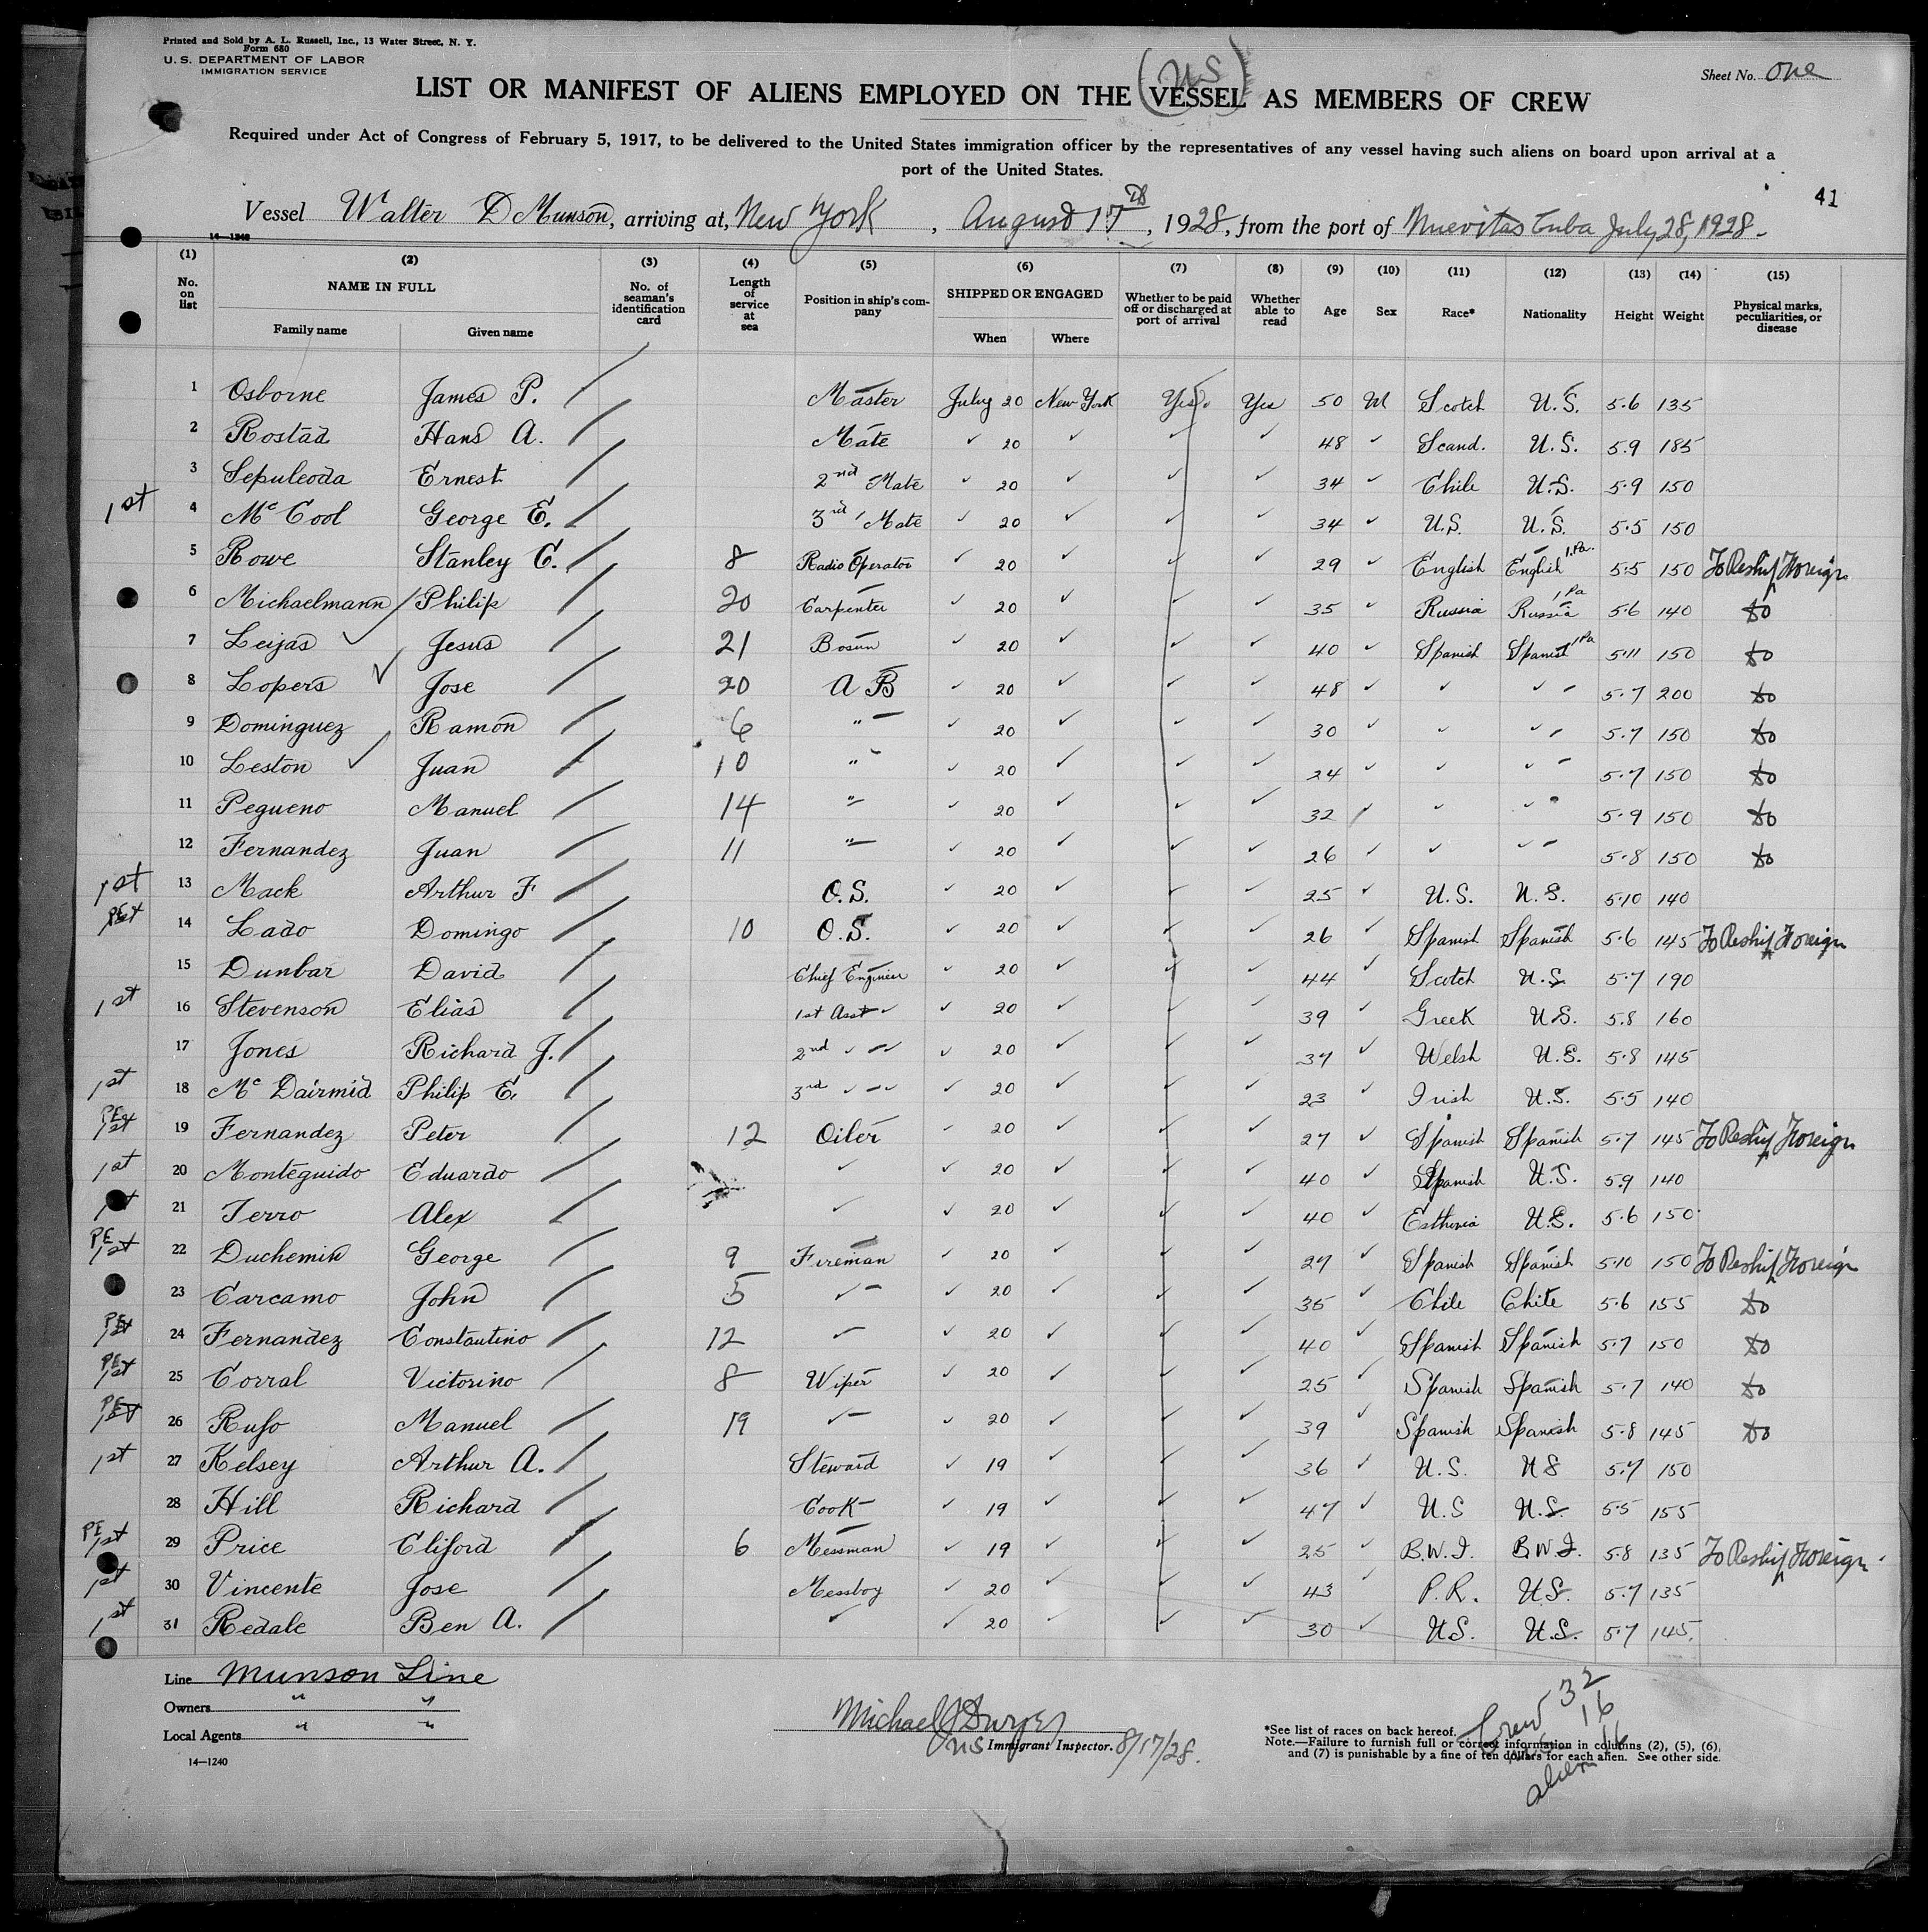 Printed and Sold by A. L. Russell, Inc., 13 Water Street, N. Y.
Form 680
U. S. DEPARTMENT OF LABOR
IMMIGRATION SERVICE
Sheet No. One
(U.S)
LIST OR MANIFEST OF ALIENS EMPLOYED ON THE VESSEL AS MEMBERS OF CREW
Required under Act of Congress of February 5, 1917, to be delivered to the United States immigration officer by the representatives of any vessel having such aliens on board upon arrival at a
port of the United States.
41
Vessel Walter D Munson, arriving at, New York, August 17th, 1928, from the port of Nuevitas Cuba July 28, 1928.
14—1240
(1) (2) (3) (4) (5) (6) (7) (8) (9) (10) (11) (12) (13) (14) (15)
No. on list NAME IN FULL Family name Given name No. of seaman's identification card Length of service at sea Position in ship's company SHIPPED OR ENGAGED When Where Whether to be paid off or discharged at port of arrival Whether able to read Age Sex Race* Nationality Height Weight Physical marks, peculiarities, or disease
1 Osborne James P. Master July 20 New York Yes. Yes 50 M Scotch U.S. 5.6 135
2 Rostad Hans A. Mate ✓ 20 ✓ ✓ ✓ 48 ✓ Scand. U.S. 5.9 185
3 Sepuleoda Ernest 2nd Mate ✓ 20 ✓ ✓ ✓ 34 ✓ Chile U.S. 5.9 150
1st 4 Mc Cool George E. 3rd Mate ✓ 20 ✓ ✓ ✓ 34 ✓ U.S. U.S. 5.5 150
5 Rowe Stanley C. 8 Radio Operator ✓ 20 ✓ ✓ ✓ 29 ✓ English English 1.Pa. 5.5 150 To Reship Foreign
6 Michaelmann Philip 20 Carpenter ✓ 20 ✓ ✓ ✓ 35 ✓ Russia Russia 1 Pa 5.6 140 do
7 Leijas ✓ Jesus 21 Bosun ✓ 20 ✓ ✓ ✓ 40 ✓ Spanish Spanish 1 Pa 5.11 150 do
8 Lopers ✓ Jose 20 A B ✓ 20 ✓ ✓ ✓ 48 ✓ ✓ ✓ ✓ 5.7 200 do
9 Dominguez Ramon 6 " ✓ 20 ✓ ✓ ✓ 30 ✓ ✓ ✓ ✓ 5.7 150 do
10 Leston ✓ Juan 10 " ✓ 20 ✓ ✓ ✓ 24 ✓ ✓ ✓ ✓ 5.7 150 do
11 Pegueno Manuel 14 " ✓ 20 ✓ ✓ ✓ 32 ✓ ✓ ✓ " 5.9 150 do
12 Fernandez Juan 11 " ✓ 20 ✓ ✓ ✓ 26 ✓ ✓ ✓ ✓ 5.8 150 do
1st 13 Mack Arthur F O.S. ✓ 20 ✓ ✓ ✓ 25 ✓ U.S. U.S. 5.10 140
PE 1st 14 Lado Domingo 10 O.S. ✓ 20 ✓ ✓ ✓ 26 ✓ Spanish Spanish 5.6 145 To Reship Foreign
15 Dunbar David Chief Engineer ✓ 20 ✓ ✓ ✓ 44 ✓ Scotch U.S 5.7 190
1st 16 Stevenson Elias 1st Asst ✓ ✓ 20 ✓ ✓ ✓ 39 ✓ Greek U.S. 5.8 160
17 Jones Richard J. 2nd ✓ ✓ ✓ 20 ✓ ✓ ✓ 37 ✓ Welsh U.S. 5.8 145
1st 18 Mc Dairmid Philip E. 3rd ✓ ✓ ✓ 20 ✓ ✓ ✓ 23 ✓ Irish U.S. 5.5 140
PE 1st 19 Fernandez Peter 12 Oiler ✓ 20 ✓ ✓ ✓ 27 ✓ Spanish Spanish 5.7 145 To Reship Foreign
1st 20 Monteguido Eduardo ✓ ✓ 20 ✓ ✓ ✓ 40 ✓ Spanish U.S. 5.9 140
1st 21 Ferro Alex ✓ ✓ 20 ✓ ✓ ✓ 40 ✓ Esthonia U.S. 5.6 150
PE 1st 22 Duchemin George 9 Fireman ✓ 20 ✓ ✓ ✓ 27 ✓ Spanish Spanish 5.10 150 To Reship Foreign
23 Carcamo John 5 ✓ ✓ 20 ✓ ✓ ✓ 35 ✓ Chile Chile 5.6 155 do
PE 1st 24 Fernandez Constantino 12 ✓ ✓ 20 ✓ ✓ ✓ 40 ✓ Spanish Spanish 5.7 150 do
PE 1st 25 Corral Victorino 8 Wiper ✓ 20 ✓ ✓ ✓ 25 ✓ Spanish Spanish 5.7 140 do
PE 1st 26 Rufo Manuel 19 ✓ ✓ 20 ✓ ✓ ✓ 39 ✓ Spanish Spanish 5.8 145 do
1st 27 Kelsey Arthur A. Steward ✓ 19 ✓ ✓ ✓ 36 ✓ U.S. US 5.7 150
28 Hill Richard Cook ✓ 19 ✓ ✓ ✓ 47 ✓ U.S U.S. 5.5 155
PE 1st 29 Price Cliford 6 Messman ✓ 19 ✓ ✓ ✓ 25 ✓ B.W.I. B.W.I. 5.8 135 To Reship Foreign
1st 30 Vincente Jose Messboy ✓ 20 ✓ ✓ ✓ 43 ✓ P.R. U.S. 5.7 135
1st 31 Redale Ben A. ✓ ✓ 20 ✓ ✓ ✓ 30 ✓ U.S. U.S. 5.7 145.
Line Munson Line
Owners " "
Local Agents " "
14—1240
Michael J Dwyer
US Immigrant Inspector. 8/17/28.
*See list of races on back hereof.
Note.—Failure to furnish full or correct information in columns (2), (5), (6),
and (7) is punishable by a fine of ten dollars for each alien. See other side.
Crew 32
16
aliens 16